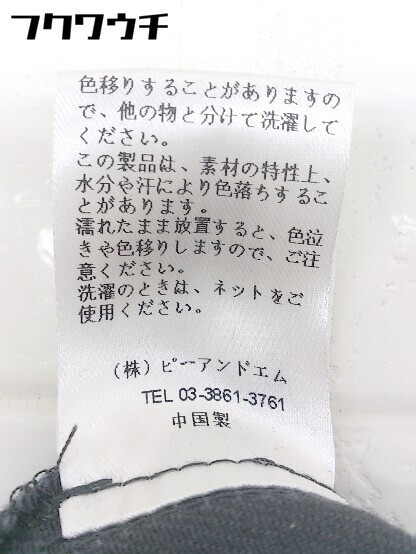 フクウウチ
色移りすることがありますの
で、他の物と分けて洗濯して
ください。
この製品は、素材の特性上、
水分や汗により色落ちするこ
とがあります。
濡れたまま放置すると、色泣
きや色移りしますので、ご注
意ください。
洗濯のときは、ネットをご
使用ください。
(株)ピーアンドエム
TEL 03-3861-3761
中国製